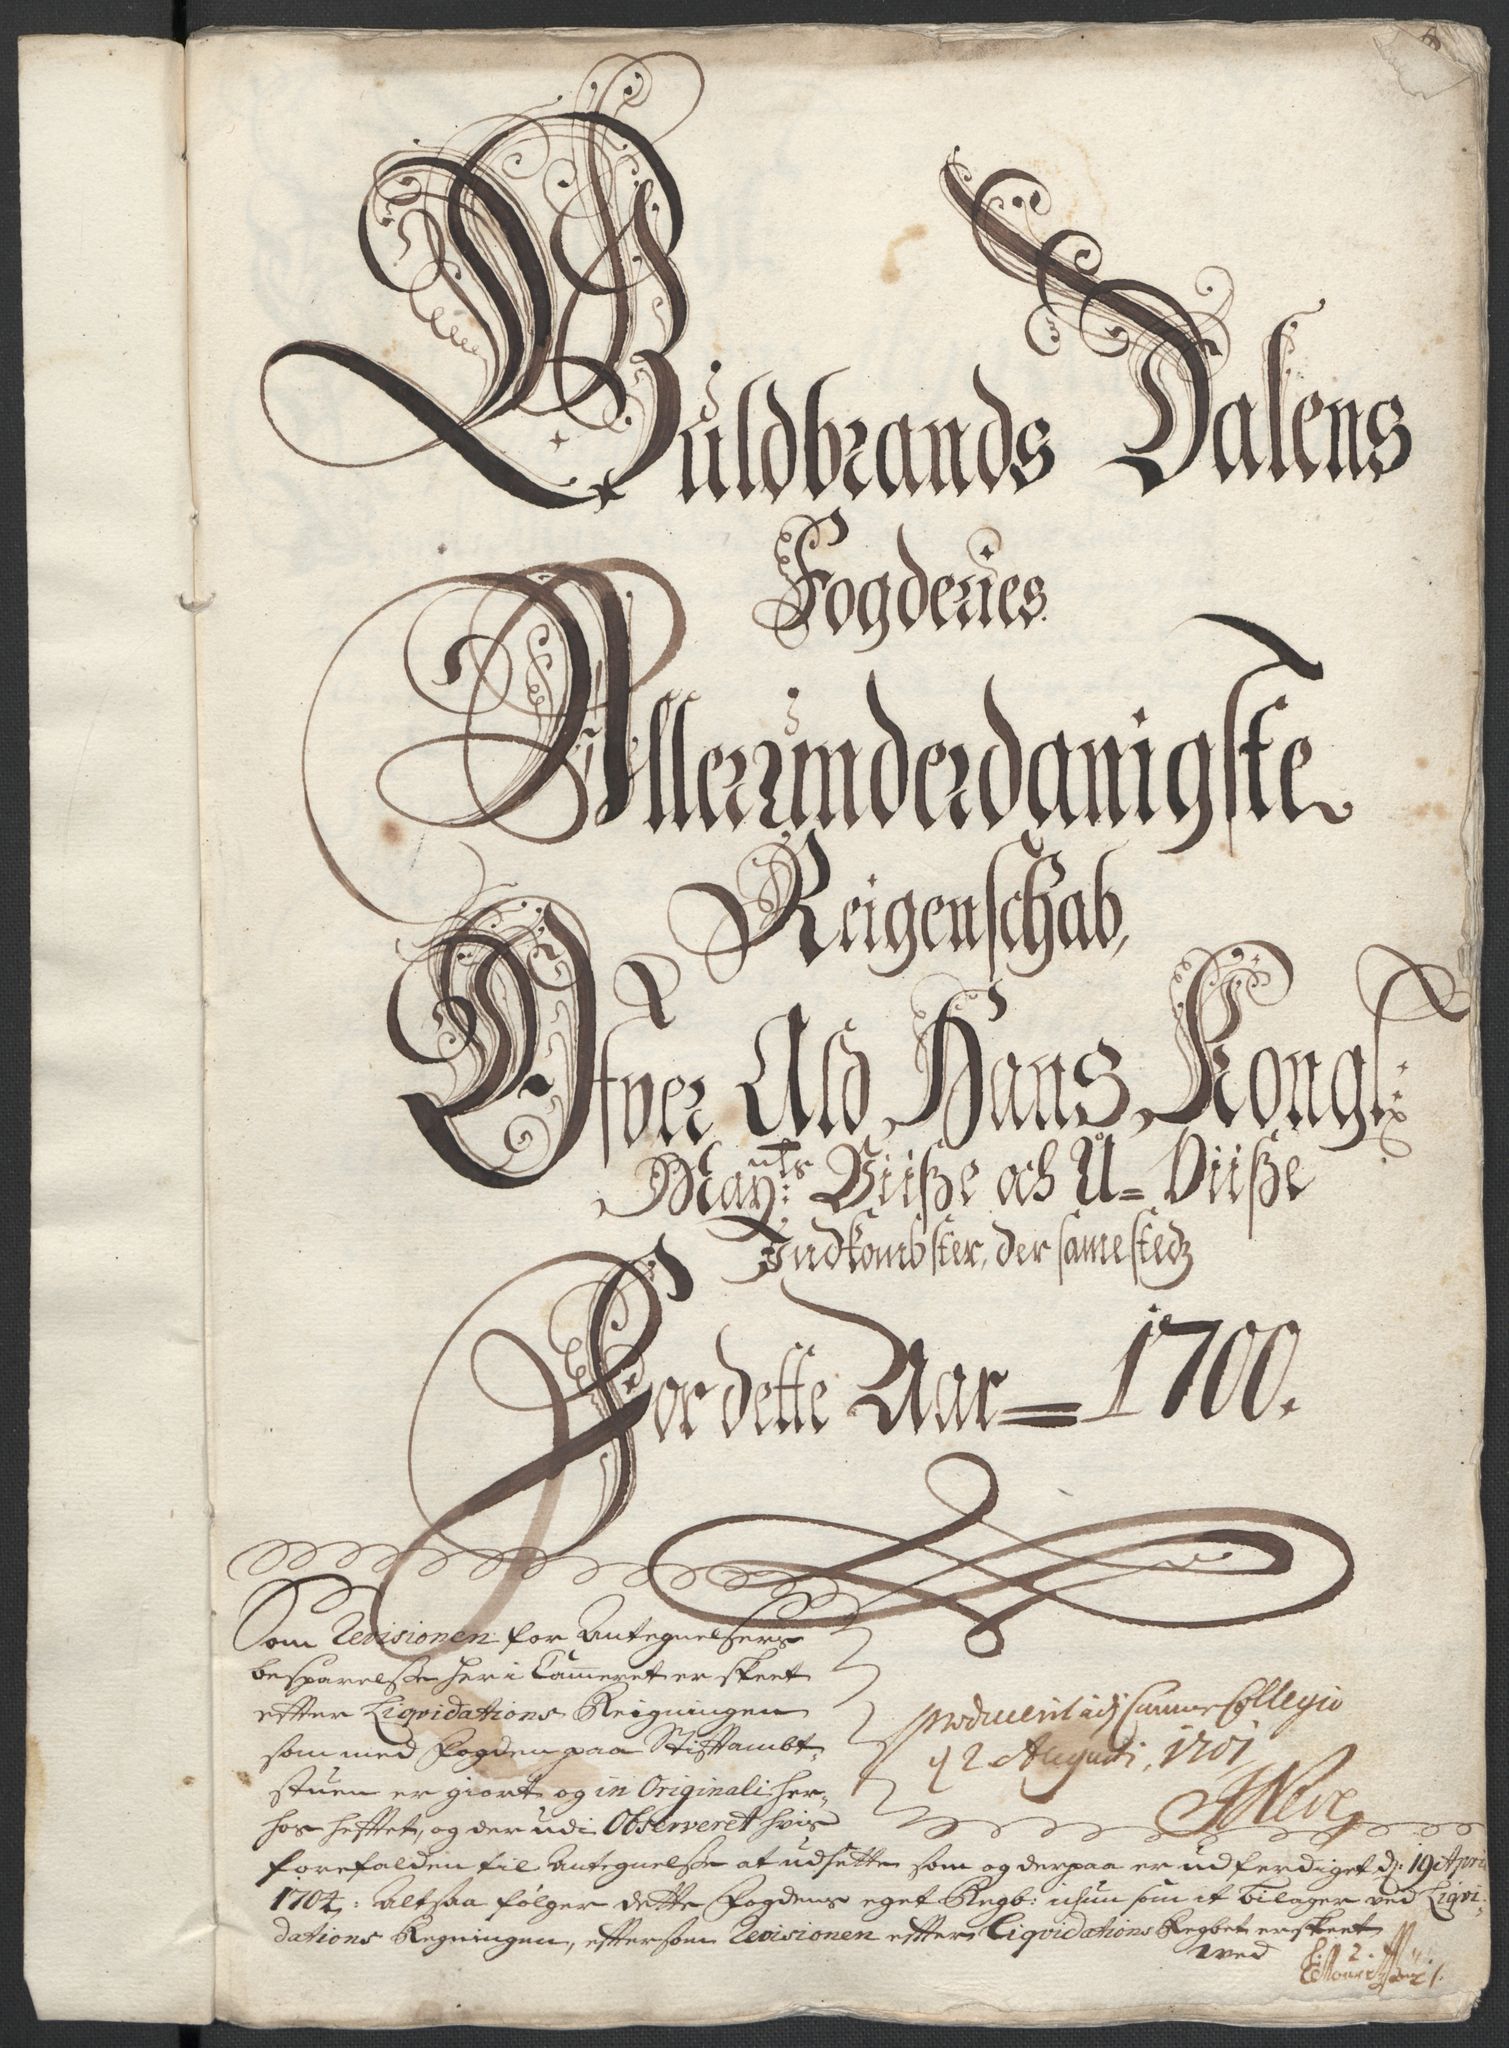 Guldbrands Dalens
Fogderies
Allerunderdanigste
Reigenschab,
Ofver Ald Hans Kongl:
May:ts Viiße och U=Viiße
Indkombster, der samestedz
For dette Aar = 1700.
Som Revisionen for Antegnelsers
besparelsse her i Cammeret er skeet
efter Liqvidations Reigningen
som med Fogden paa Stiftambt-
stuen er giort og in Originali her-
hos heftet, og der udi Observeret hvis
forefalden til Antegnelsse at udsette som og derpaa er udferdiget d: 19 April
1704: Altsaa følger dette Fogdens eget Regb: ichun som it Bilager ved Liqvi-
dations Regningen, eftersom Revisionen efter Liqvidations Regbet er skeet
ved
producerit udj Camer Collegio
d 2 Augusti, 1701